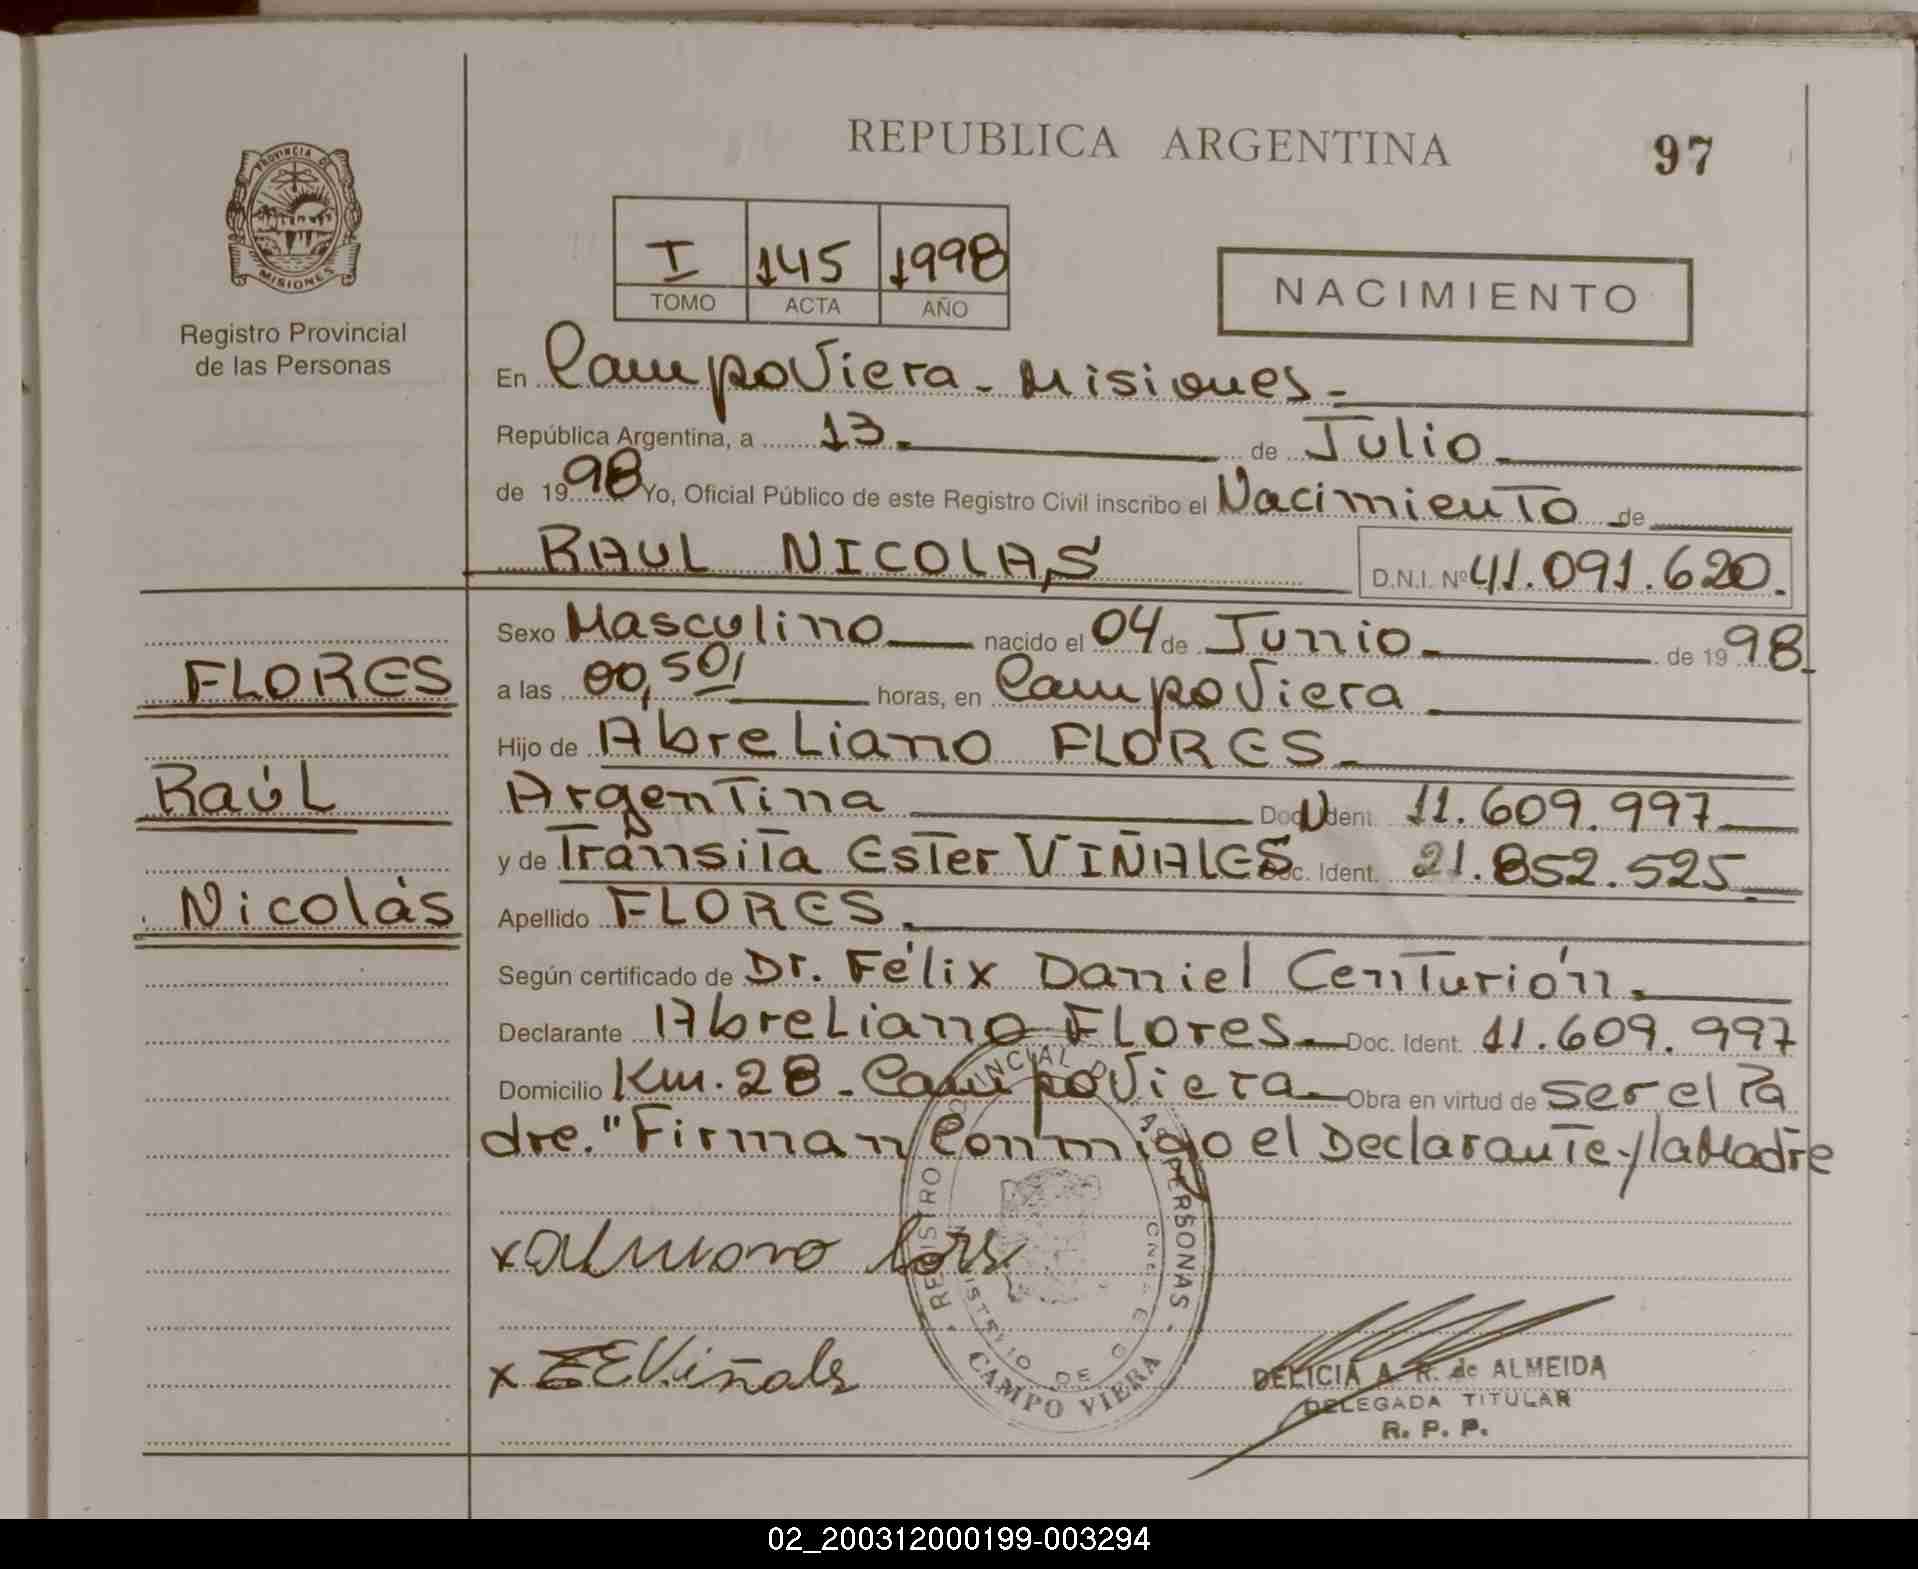 REPUBLICA ARGENTINA
97
PROVINCIA DE
MISIONES
Registro Provincial
de las Personas
I 145 1998
TOMO ACTA AÑO
NACIMIENTO
En Campo Viera - Misiones.=
República Argentina, a 13. de Julio
de 1998 Yo, Oficial Público de este Registro Civil inscribo el Nacimiento de
RAUL NICOLAS D.N.I. Nº 41.091.620.
Sexo Masculino nacido el 04 de Junio de 1998
a las 00,50 horas, en Campo Viera
Hijo de Abreliano FLORES.
Argentina Doc. Ident. 11.609.997
y de Transita Ester VIÑALES Doc. Ident. 21.852.525
Apellido FLORES.
Según certificado de Dr. Félix Daniel Centurión.
Declarante Abreliano Flores Doc. Ident. 11.609.997
Domicilio Km. 28 - Campo Viera Obra en virtud de ser el Pa
dre. "Firman Conmigo el Declarante y la Madre
FLORES
Raúl
Nicolás
x
x ZEViñales
REGISTRO PROVINCIAL DE LAS PERSONAS
MINISTERIO DE G
CAMPO VIERA
DELICIA A. R. de ALMEIDA
DELEGADA TITULAR
R. P. P.
02_200312000199-003294